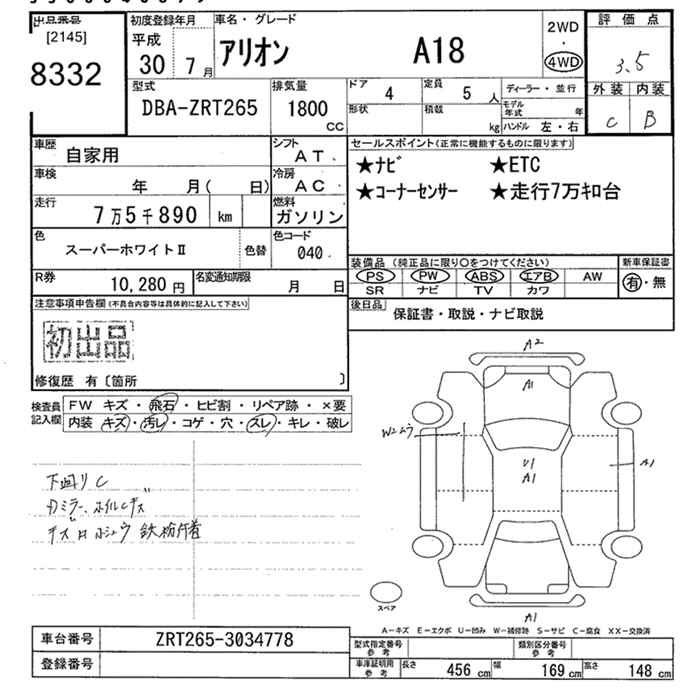 出品番号
[2145]
8332
初度登録年月
平成
30年 7月
車名・グレード
アリオン A18
2WD
・
4WD
評価点
3.5
外装 内装
C B
型式
DBA-ZRT265
排気量
1800
CC
ドア 4
定員 5 人
形状
積載 kg
ディーラー・並行
モデル年式 年
ハンドル 左・右
車歴
自家用
シフト
AT.
車検
年 月( 日)
冷房
AC.
走行
7万5千890 km
燃料
ガソリン
色
スーパーホワイトⅡ
色替
色コード
040.
R券
10,280円
名変通知期限
月 日
セールスポイント(正常に機能するものに限ります)
★ナビ ★ETC
★コーナーセンサー ★走行7万キロ台
装備品 (純正品に限り○をつけてください)
PS PW ABS エアB AW
SR ナビ TV カワ
新車保証書
有・無
後日品
保証書・取説・ナビ取説
注意事項申告欄(不具合内容等は具体的に記入して下さい)
初出品
修復歴 有〔箇所 〕
検査員
記入欄
FW キズ・飛石・ヒビ割・リペア跡・×要
内装 キズ・汚レ・コゲ・穴・ズレ・キレ・破レ
下回りC
A2
A1
W2
U1
A1
A1
A1
スペア
A-キズ E-エクボ U-凹み W-補修跡 S-サビ C-腐食 XX-交換済
車台番号 ZRT265-3034778
登録番号
型式指定番号
参考
類別区分番号
参考
車庫証明用
参考
長さ 456 cm 幅 169 cm 高さ 148 cm